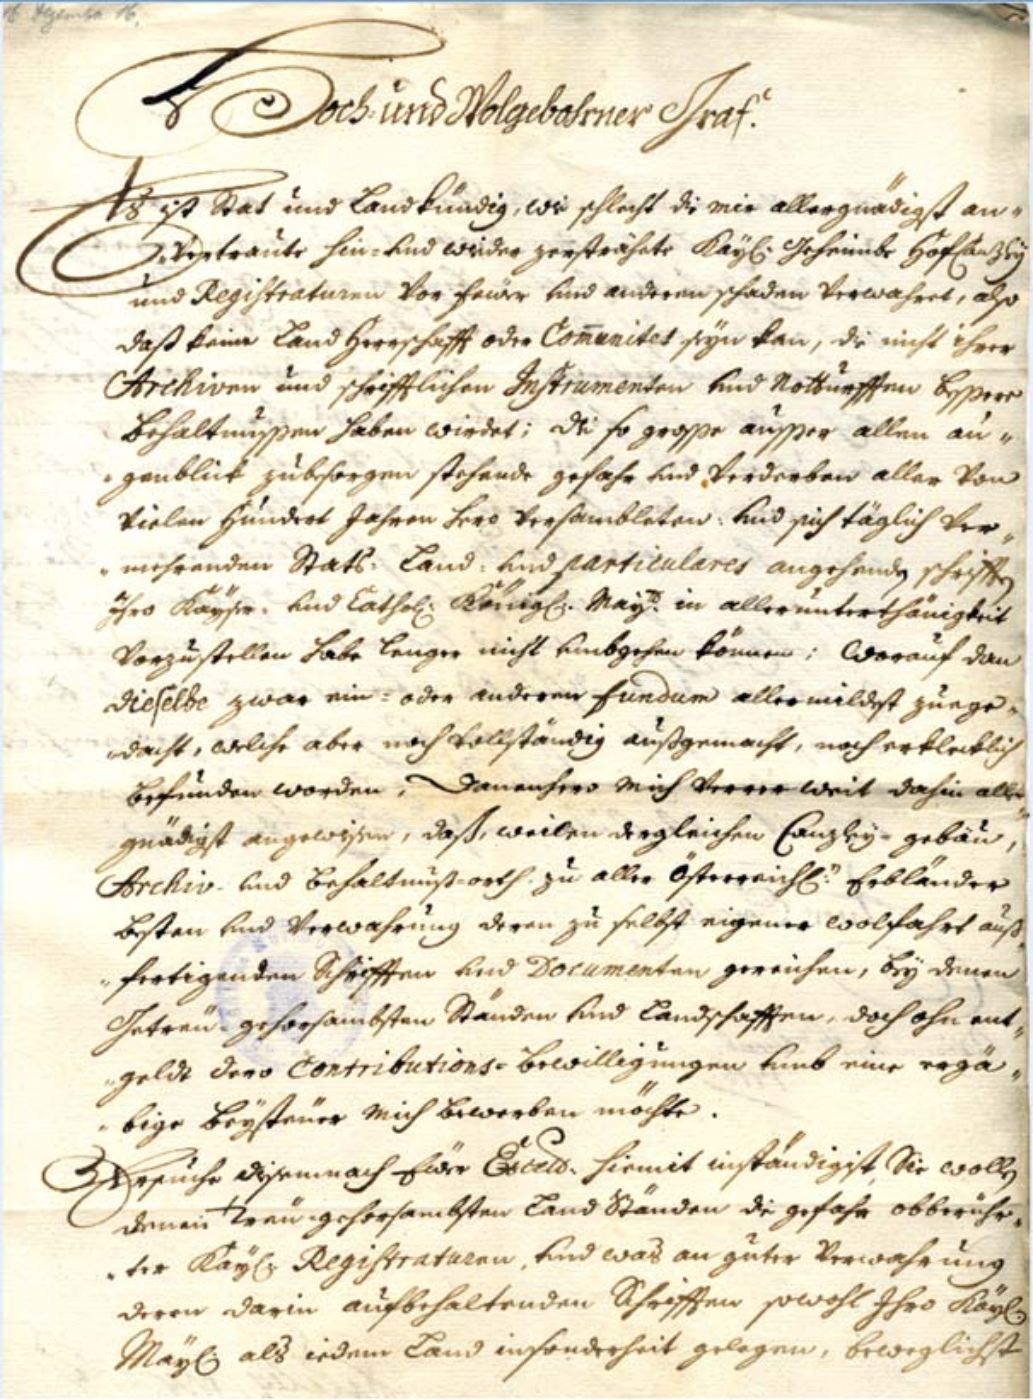 16 Dezember 16.
Hoch- und Wolgebohrner Graf.
Es ist Stat und Landkündig, wie schlecht die mir allergnädigst an-
vertraute hin- und wider zerströhete Kayl: Geheimbe HofCanzley
und Registraturen vor feüer und anderen schaden verwahret, also
daß keine Land Herrschafft oder Com̄unitet seyn kan, die nicht ihrer
Archiven und schrifftlichen Instrumenten und Notturfften bessere
behaltnussen haben wirdet; die so grosse ausser allen au-
genblick zubesorgen stehende gefahr und verderben aller von
vielen hundert Jahren hero versambleten und sich täglich ver-
mehrenden Stats- Land- und particulares angehende schrifften
Ihro Kayser- und Cathol: Königl: Maytt. in allerunterthänigkeit
vorzustellen habe lenger nicht umbgehen können; worauf dan
dieselbe zwar ein- oder anderen fundum allermildest zuege-
dacht, welche aber noch vollständig außgemacht, noch erklecklich
befunden worden, Danenhero mich verrer weit dahin aller
gnädigst angewisen, daß, weilen dergleichen Canzley-gebäu,
Archiv- und behaltnuß-orth zu aller Österreichl: Erbländer
besten und verwahrung deren zu selbst eigener wolfahrt auß-
fertigenden Schrifften und Documenten gereichen, bey denen
Getreu-gehorsambsten Ständen und Landschafften, doch ohn ent-
geldt dero Contributions-bewilligungen umb eine ergä-
bige beysteuer mich bewerben möchte.
Ersuche disemnach Euer Excell: hiemit inständigist, Sie wollen
denen Treu-gehorsambsten Land Ständen die gefahr obberühr-
ter Kayl: Registraturen, und was an guter verwahrung
deren darin aufbehaltenden Schrifften sowohl Ihro Kayl:
Mayl: als iedem Land insonderheit gelegen, beweglichst